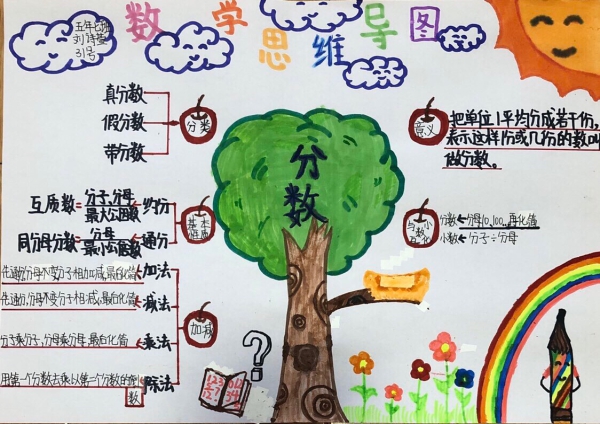 五年七班
刘诗蓥
31号
数学思维导图
分数
分类
真分数
假分数
带分数
意义
把单位1平均分成若干份,
表示这样1份或几份的数叫
做分数。
基本性质
互质数=分子,分母/最大公因数←约分
同分母分数=分母/最小公倍数←通分
与小数互化
分数←分母10,100..再化值
小数←分子÷分母
加减
先通分,分母不变分子相加减,最白化简←加法
先通分,分母不变分子相减,最白化简←减法
分子乘分子,分母乘分母,最白化简←乘法
用第一个分数去乘以第二个分数的倒数←除法